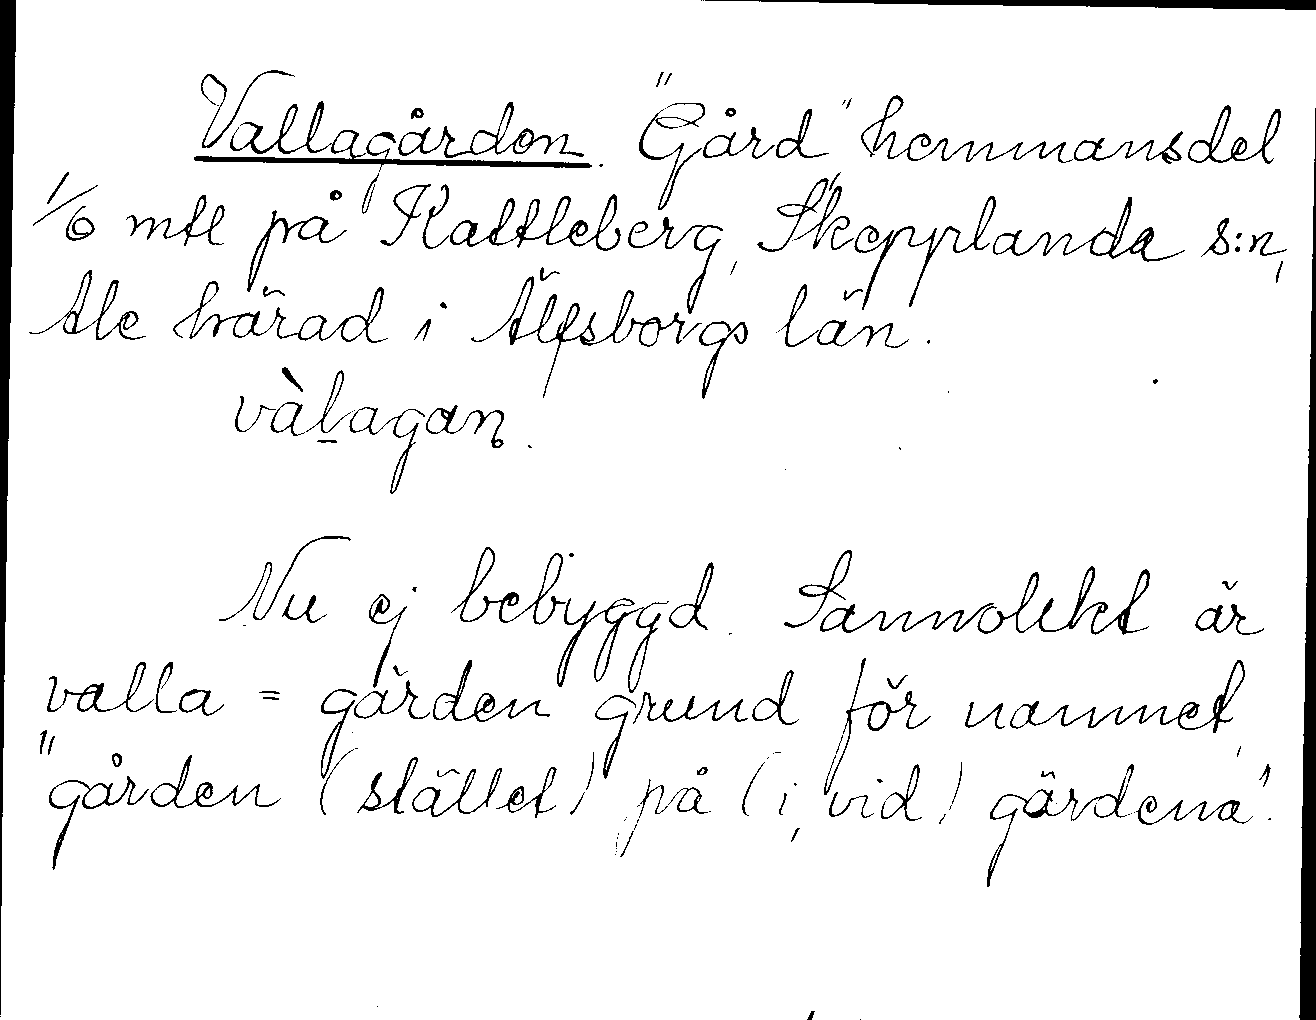 Vallagården. "Gård", hemmansdel
1/6 mtl på Kattleberg, Skepplanda s:n,
Ale härad i Älfsborgs län.
vàl̠agan̥.
Nu ej bebyggd. Sannolikt är
valla = gärden grund för namnet,
"gården (stället) på (i, vid) gärdena".